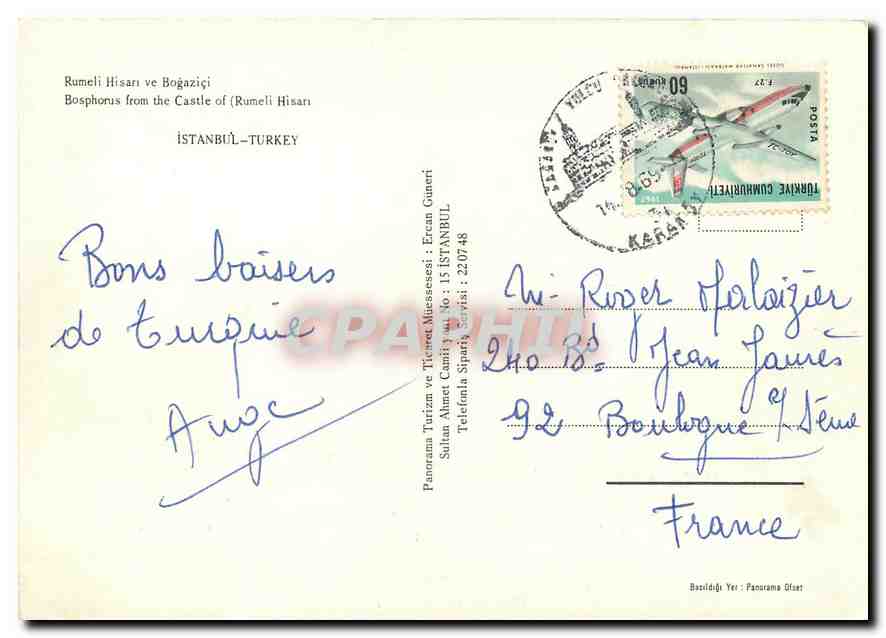 Rumeli Hisarı ve Boğaziçi
Bosphorus from the Castle of (Rumeli Hisarı
İSTANBUL-TURKEY
Bons baisers
de Turquie
Panorama Turizm ve Ticaret Müessesesi : Ercan Güneri
Sultan Ahmet Camii yanı No : 15 İSTANBUL
Telefonla Sipariş Servisi : 22 07 48
YOLCU
8.69
KARAKÖY
60
KURUŞ
F.27
POSTA
TC-TOP
TÜRKİYE CUMHURİYETİ
1967
Mr Roger Malaizier
240 Bd Jean Jaurès
92 Boulogne s/ Seine
France
Basıldığı Yer : Panorama Ofset
CPAPHIL